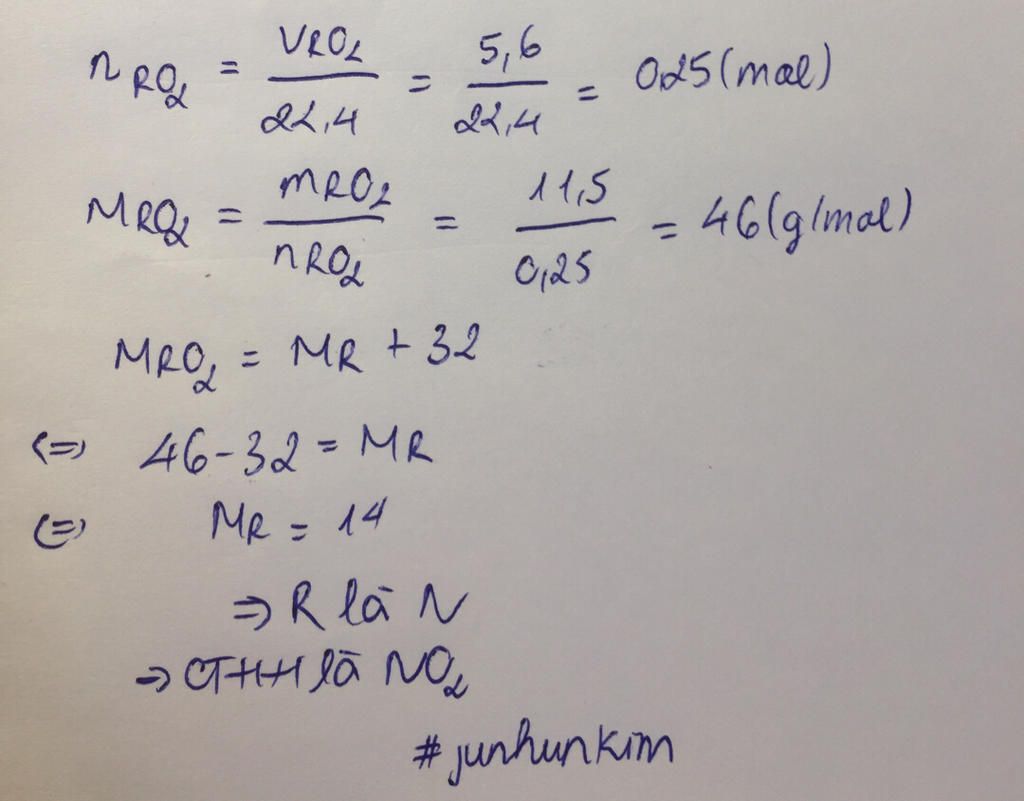 nRO₂ = VRO₂ / 22,4 = 5,6 / 22,4 = 0,25 (mol)
MRO₂ = mRO₂ / nRO₂ = 11,5 / 0,25 = 46 (g/mol)
MRO₂ = MR + 32
(=) 46 - 32 = MR
(=) MR = 14
=> R là N
=> CTHH là NO₂
#junhunkim